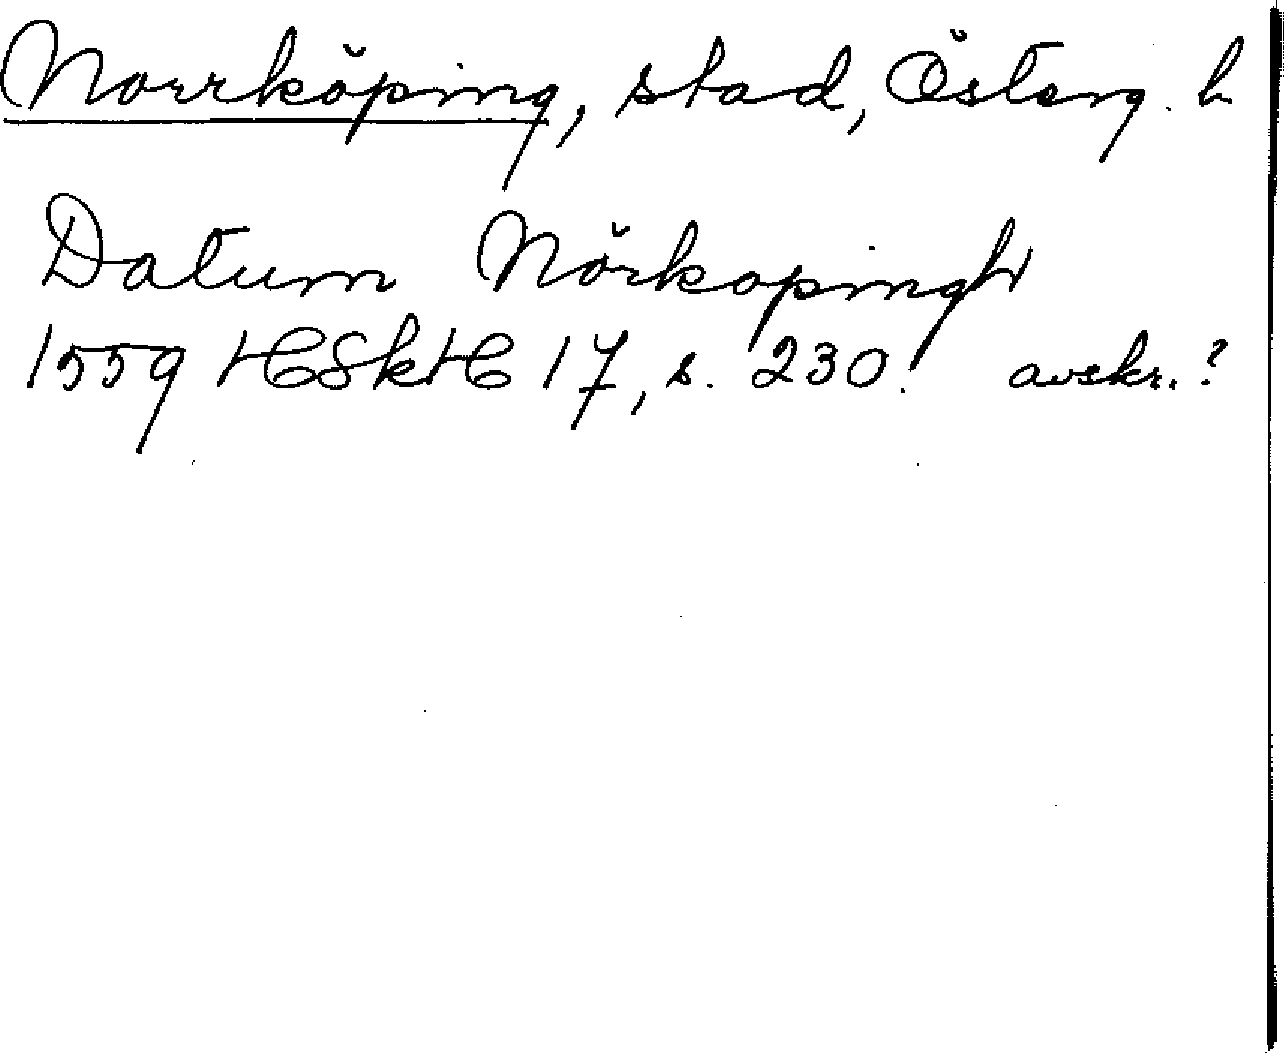 Norrköping, stad, Österg. l
Datum Nörkopingh
1559 HSkH 17, s. 230. avskr.?